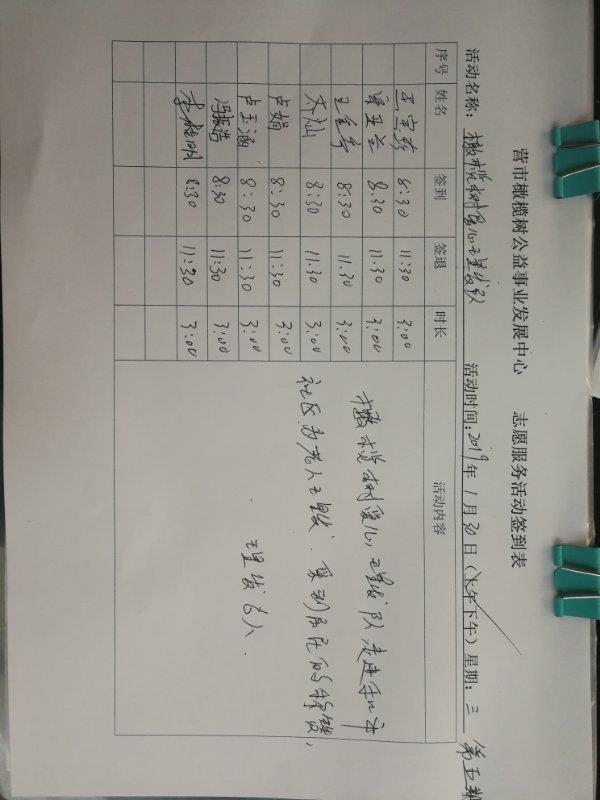 营市橄榄树公益事业发展中心 志愿服务活动签到表
活动名称：橄榄树爱心理发队 活动时间：2019年1月30日（上午下午）星期：三
序号 姓名 签到 签退 时长 活动内容
8:30 11:30 3:00
8:30 11:30 3:00
8:30 11.30 3:00
齐灿 8:30 11.30 3:00
卢娟 8:30 11:30 3:00
卢玉涵 8:30 11:30 3:00
冯振浩 8:30 11:30 3:00
李桂明 8:30 11:30 3:00
橄榄树爱心理发队走进
社区为老人理发．受到居民的称赞，
理发6人．